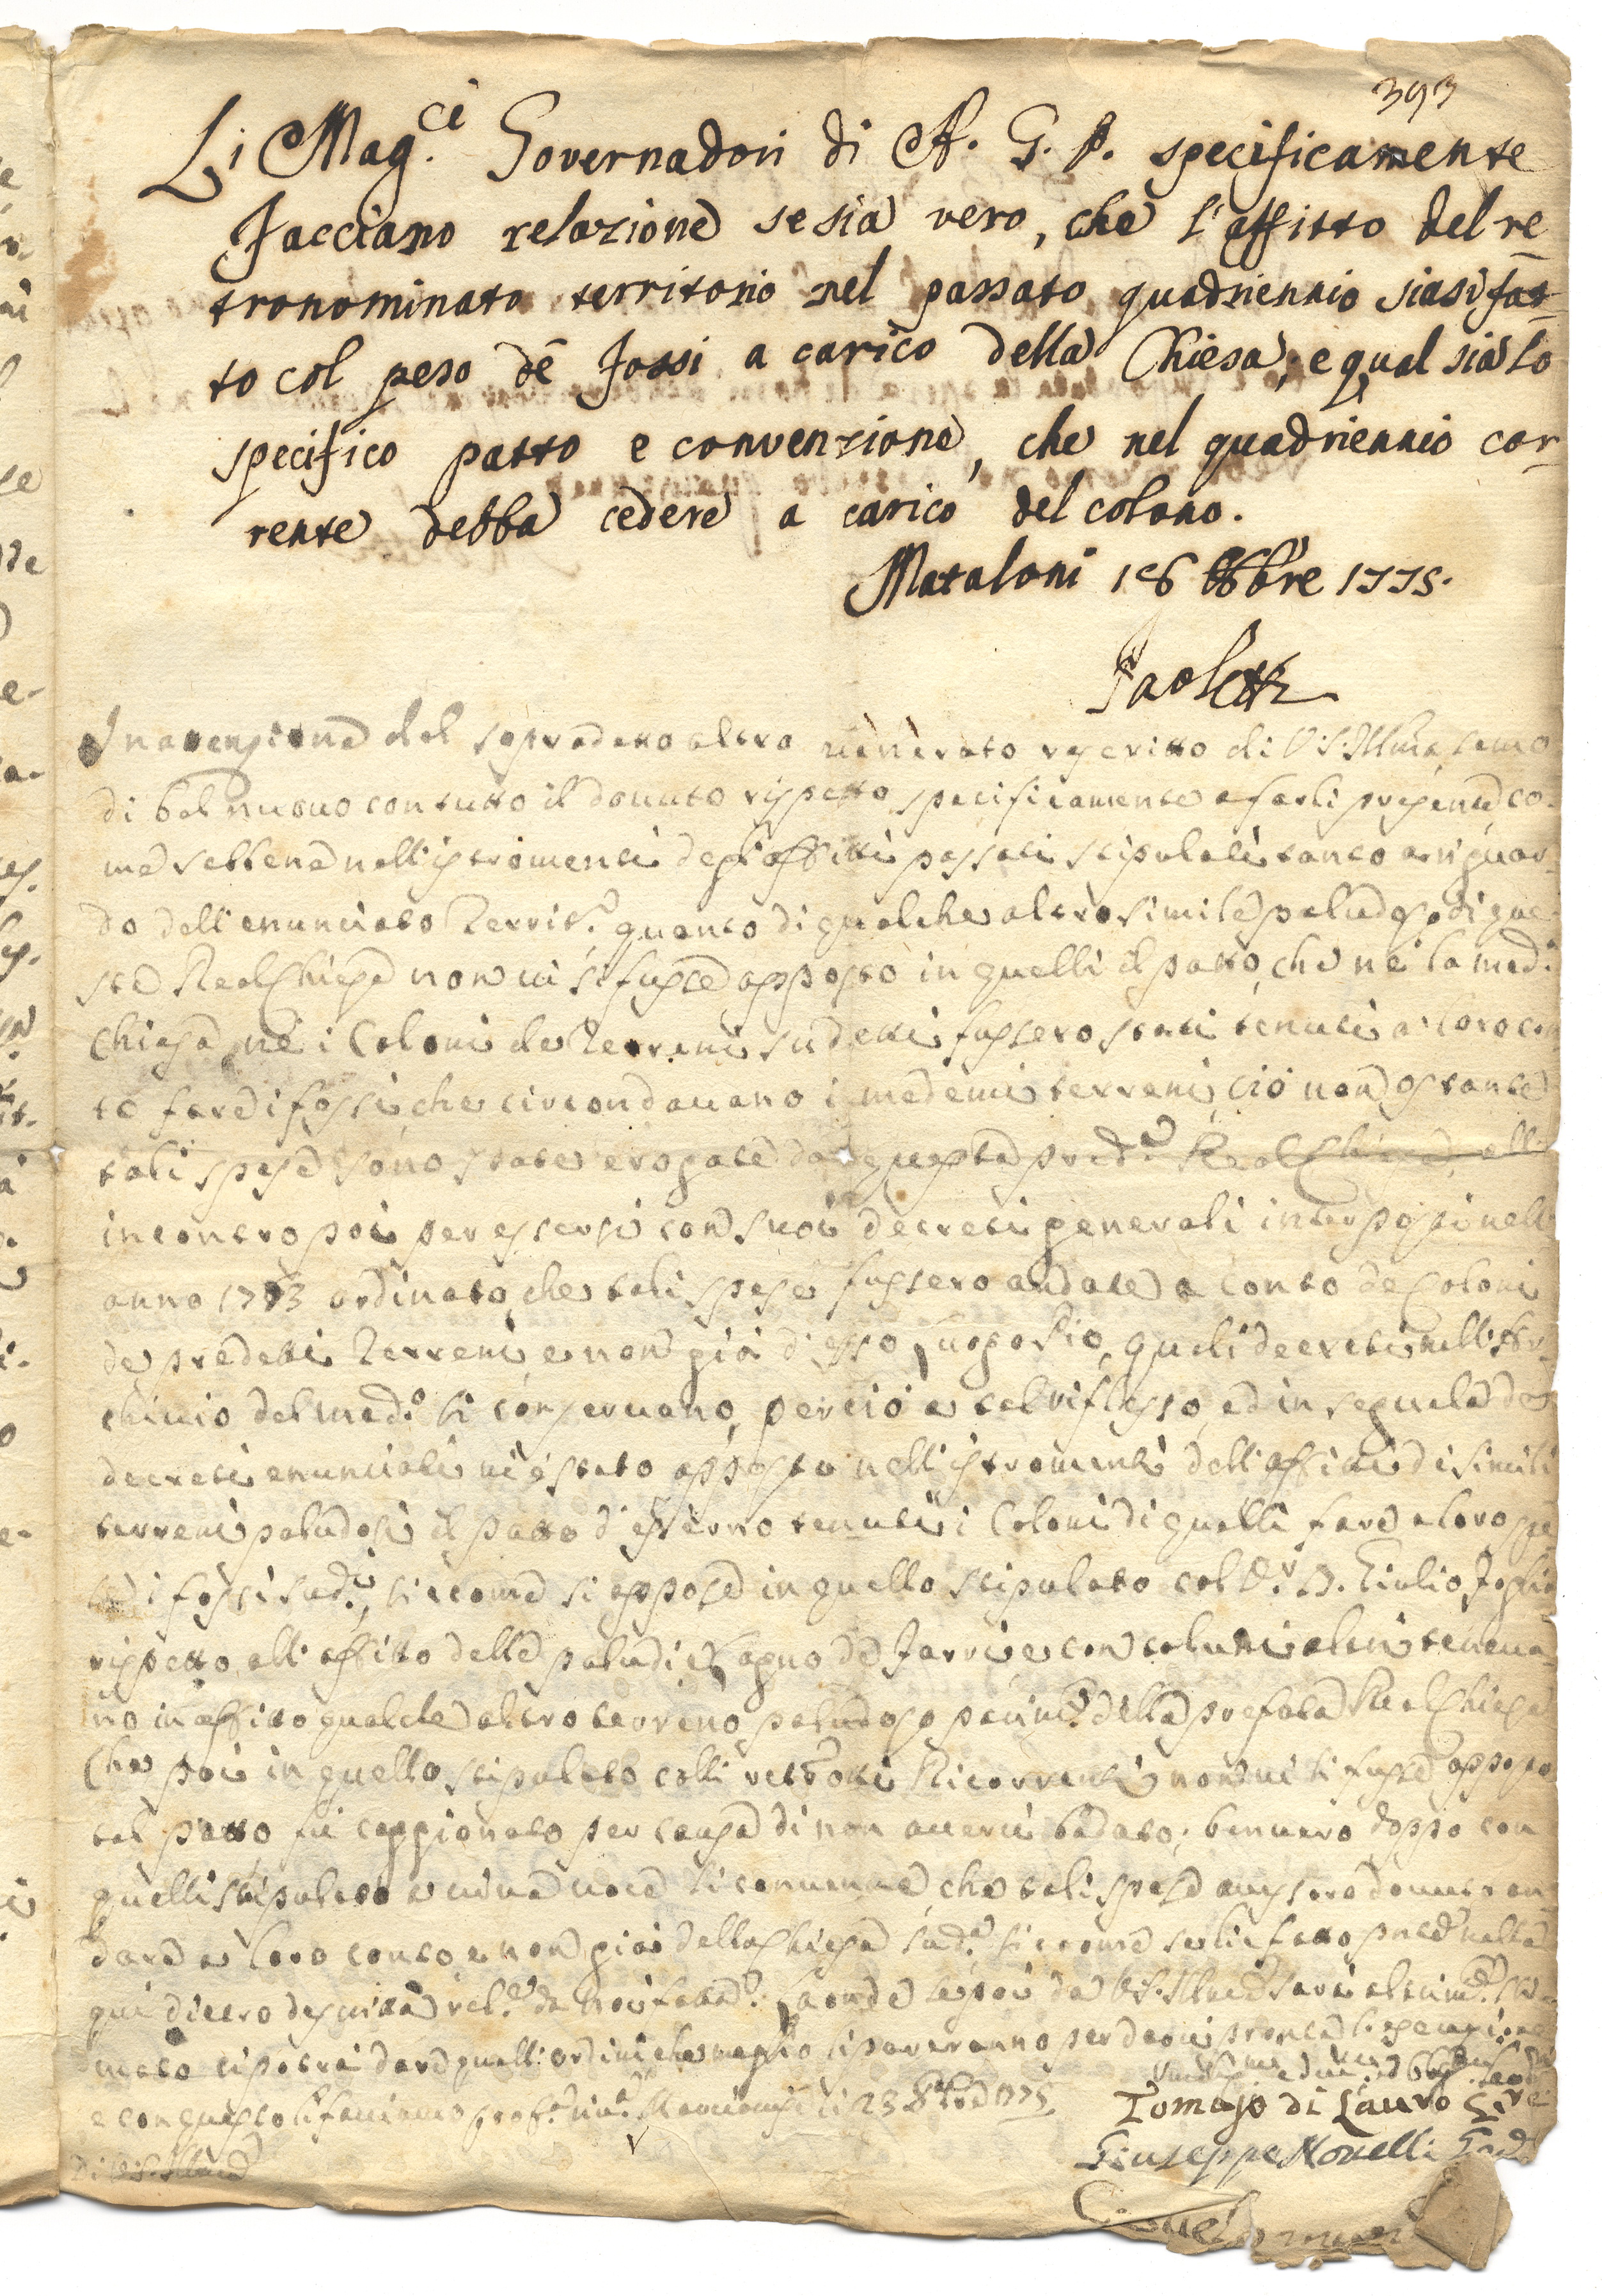 393
Li Mag.ci Governadori di A. G. P. specificamente
facciano relazione se sia vero, che l'affitto del re
tronominato territorio nel passato quadriennio siasi fat-
to col peso dè fossi a carico della Chiesa, e qual sia lo
specifico patto e convenzione, che nel quadriennio cor-
rente debba cedere a carico del colono.
Mataloni 16 8bre 1775.
Paoletti
In del sopradetto altro venerato rescritto di V. S. Illma siamo
di bel nuovo con tutto il dovuto rispetto specificamente a farli presente co-
me sebbene nelli istromenti degl'affitti passati stipulati tanto a riguar-
do dell'enunciato Territ.o quanto di qualche altro simile paludoso di que-
sta Real Chiesa non vi si fusse apposto in quelli il patto, che nè la med.a
Chiesa, nè i Coloni de Terreni sudetti fussero stati tenuti a loro con-
to fare i fossi, che circondavano i medemi terreni, ciò non ostante
tali spese sono state erogate da questa pred.a Real Chiesa, all'
incontro poi per essersi con suoi decreti generali interposti nell'
anno 1773 ordinato, che tali spese fussero andate a conto de Coloni
de predetti Terreni e non già d'esso Luogo Pio, quali decreti nell'Ar-
chivio del med.o si conservano, perciò a tal riflesso, ed in seguela de
decreti enunciati vi è stato apposto nell'istromenti dell'affitti di simili
terreni paludosi il patto d'esserno tenuti i Coloni di quelli fare a loro spe-
se i fossi sud.i, siccome si appose in quello stipulato col D.r D. Giulio Foglia
rispetto all'affitto delle paludi e Lagno de Farri e con taluni altri teneva-
no in affitto qualche altro terreno paludoso della prefata Real Chiesa
Che poi in quello stipulato colli Ricorrenti non vi si fusse apposto
tal patto fù caggionato per causa di non averci badato; benvero doppo con
quelli stipulato a viva voce si convenne che tali spese avessero dovuto an-
dare a loro conto e non già della Chiesa sud.a siccome se li è fatto nella
qui dietro descritta rel.ne da noi fatta. Laonde se poi da V. S. Illma sarà altrim.e sti-
mato si potrà dare quelli ordini che meglio li pareranno per darci pronta
e con questo li facciamo 23 8bre 1775
Di V. S. Illma
Tomaso di Lauro Gov.e
Giuseppe Novelli Gov.e